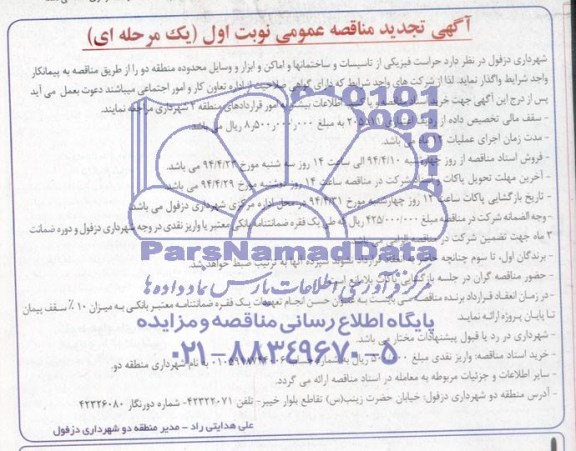 آگهی تجدید مناقصه عمومی نوبت اول (یک مرحله ای)
شهرداری دزفول در نظر دارد حراست فیزیکی از تاسیسات و ساختمانها و اماکن و ابزار و وسایل محدوده منطقه دو را از طریق مناقصه به پیمانکار
واجد شرایط واگذار نماید. لذا از شرکت های واجد شرایط که دارای گواهی صلاحیت از اداره تعاون کار و امور اجتماعی میباشند دعوت بعمل می آید
پس از درج این آگهی جهت خرید اسناد مناقصه اطلاعات بیشتر به امور قراردادهای منطقه ۲ شهرداری مراجعه نمایند.
- سقف مالی تخصیص داده از ردیف اعتباری ۲۰۵۵۱۱ به مبلغ ۸٫۵۰۰٫۰۰۰٫۰۰۰ ریال می باشد.
- مدت زمان اجرای عملیات ۱۲ ماه می باشد.
- فروش اسناد مناقصه از روز چهارشنبه ۹۴/۴/۱۰ الی ساعت ۱۴ روز سه شنبه مورخ ۹۴/۴/۲۳ می باشد.
- آخرین مهلت تحویل پاکات شرکت در مناقصه ساعت ۱۴ روز دوشنبه مورخ ۹۴/۴/۲۹ می باشد.
- تاریخ بازگشایی پاکات ساعت ۱۲ روز چهارشنبه مورخ ۹۴/۴/۳۱ در محل اداره مرکزی شهرداری دزفول می باشد.
- وجه الضمانه شرکت در مناقصه مبلغ ۴۲۵/۰۰۰/۰۰۰ ریال که طی یک فقره ضمانتنامه بانکی معتبر یا واریز نقدی در وجه شهرداری دزفول و دوره ضمانت
۳ ماه جهت تضمین شرکت در مناقصه
- برندگان اول، تا سوم چنانچه حاضر به انعقاد قرارداد نشوند سپرده آنها به ترتیب ضبط خواهد شد.
- حضور مناقصه گران در جلسه بازگشایی پاکات بلامانع است.
- در زمان انعقاد قرارداد برنده مناقصه می بایست به عنوان حسن انجام تعهدات یک فقره ضمانتنامه معتبر بانکی به میزان ۱۰٪ سقف پیمان
تا پایان پروژه ارائه نماید.
- شهرداری در رد یا قبول پیشنهادات مختار می باشد.
- خرید اسناد مناقصه: واریز نقدی مبلغ ریال به شماره حساب به نام شهرداری منطقه دو.
- سایر اطلاعات و جزئیات مربوطه به معامله در اسناد مناقصه ارائه می گردد.
- آدرس منطقه دو شهرداری دزفول: خیابان حضرت زینب(س) تقاطع بلوار خیبر- تلفن ۴۲۳۲۲۰۷۱- شماره دورنگار ۴۲۳۲۶۰۸۰
علی هدایتی راد - مدیر منطقه دو شهرداری دزفول
ParsNamadData
مرکز فرآوری اطلاعات پارس نماد داده ها
پایگاه اطلاع رسانی مناقصه و مزایده
۰۲۱-۸۸۳۴۹۶۷۰-۵